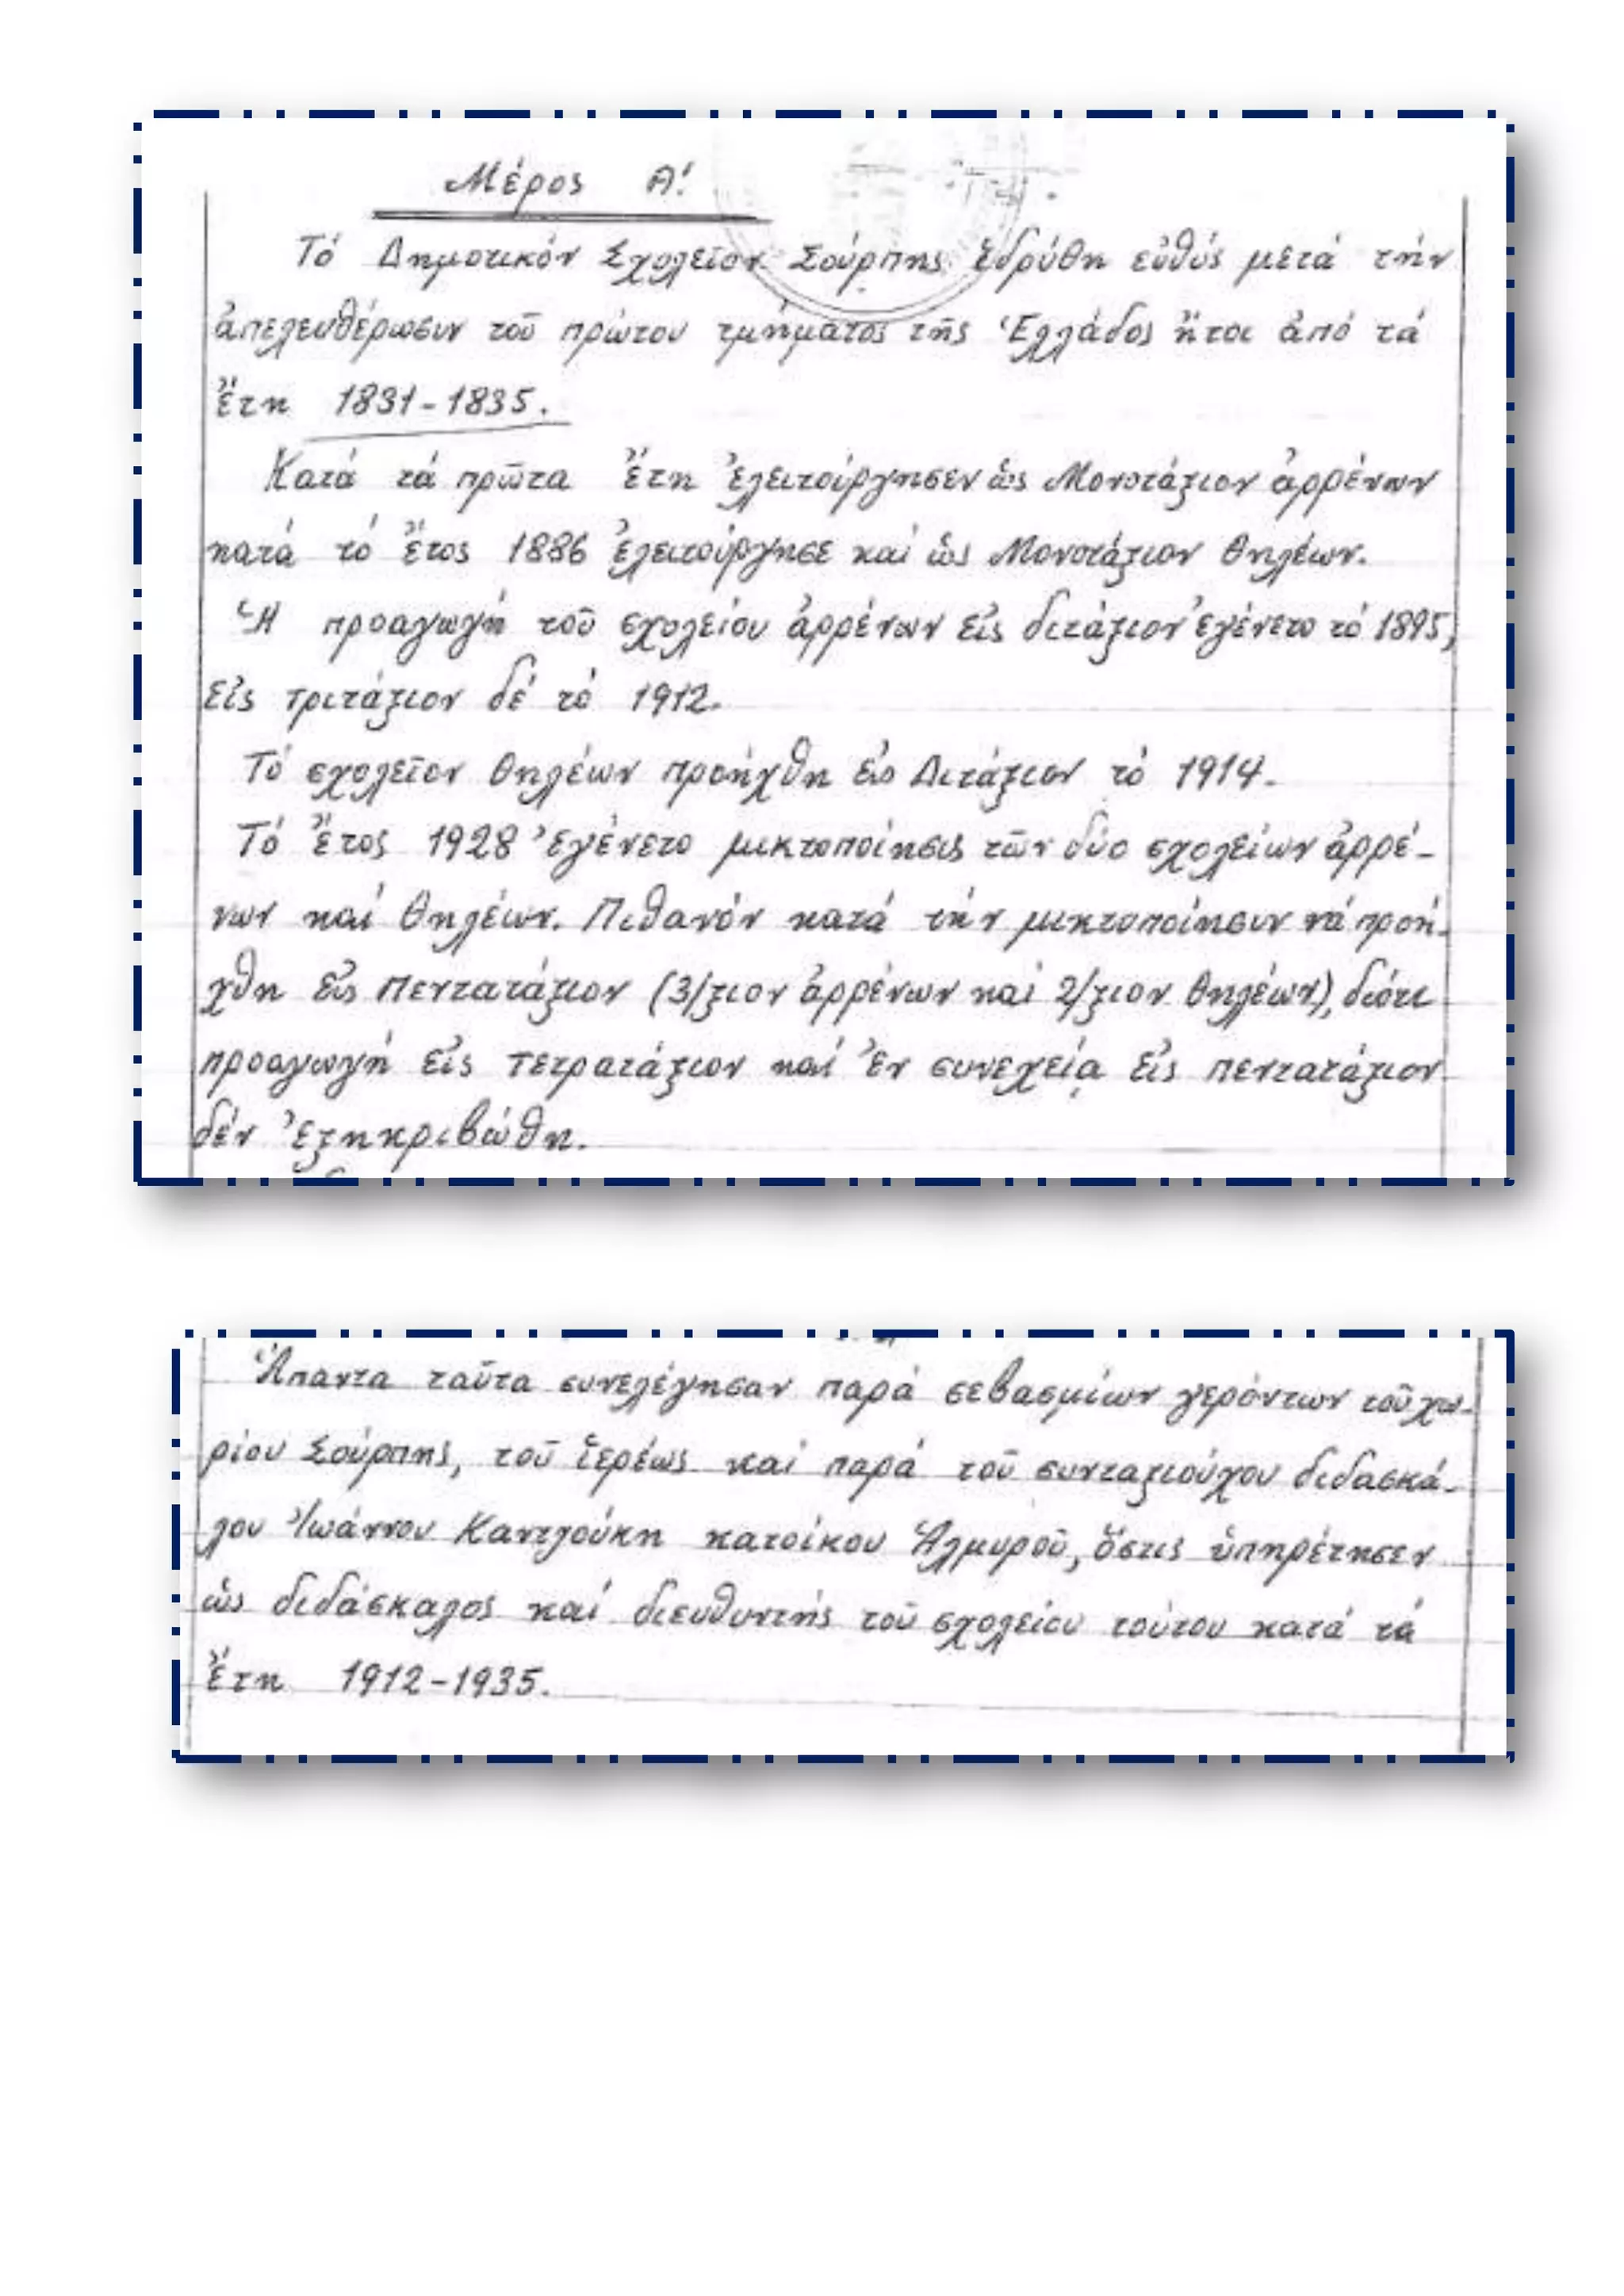 Μέρος Α!
Τό Δημοτικόν Σχολεῖον Σούρπης ἱδρύθη εὐθύς μετά τήν
ἀπελευθέρωσιν τοῦ πρώτου τμήματος τῆς Ἑλλάδος ἤτοι ἀπό τά
ἔτη 1831-1835.
Κατά τά πρῶτα ἔτη ἐλειτούργησεν ὡς Μονοτάξιον ἀρρένων
κατά τό ἔτος 1886 ἐλειτούργησε καί ὡς Μονοτάξιον θηλέων.
Ἡ προαγωγή τοῦ σχολείου ἀρρένων εἰς διτάξιον ἐγένετο τό 1895,
εἰς τριτάξιον δέ τό 1912.
Τό σχολεῖον θηλέων προήχθη εἰς Διτάξιον τό 1914.
Τό ἔτος 1928 ἐγένετο μικτοποίησις τῶν δύο σχολείων ἀρρέ-
νων καί θηλέων. Πιθανόν κατά τήν μικτοποίησιν νά προή-
χθη εἰς Πενταταξιον (3/ξιον ἀρρένων καί 2/ξιον θηλέων), διότι
προαγωγή εἰς τετρατάξιον καί ἐν συνεχείᾳ εἰς πεντατάξιον
δέν ἐξηκριβώθη.
Ἅπαντα ταῦτα συνελέγησαν παρά σεβασμίων γερόντων τοῦ χω-
ρίου Σούρπης, τοῦ ἱερέως καί παρά τοῦ συνταξιούχου διδασκά-
λου Ἰωάννου Καντλούκη κατοίκου Ἁλμυροῦ, ὅστις ὑπηρέτησεν
ὡς διδάσκαλος καί διευθυντής τοῦ σχολείου τούτου κατά τά
ἔτη 1912-1935.